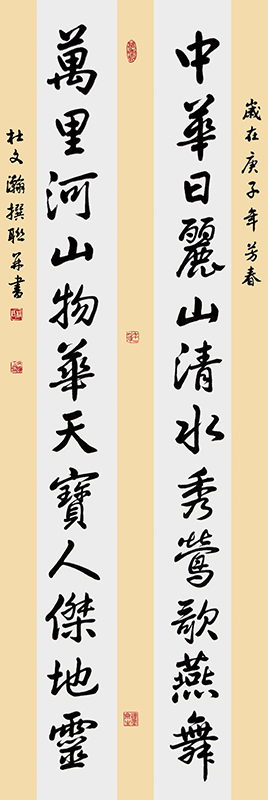 歲在庚子年芳春
中華日麗山清水秀鶯歌燕舞
萬里河山物華天寶人傑地靈
杜文瀚撰聯并書